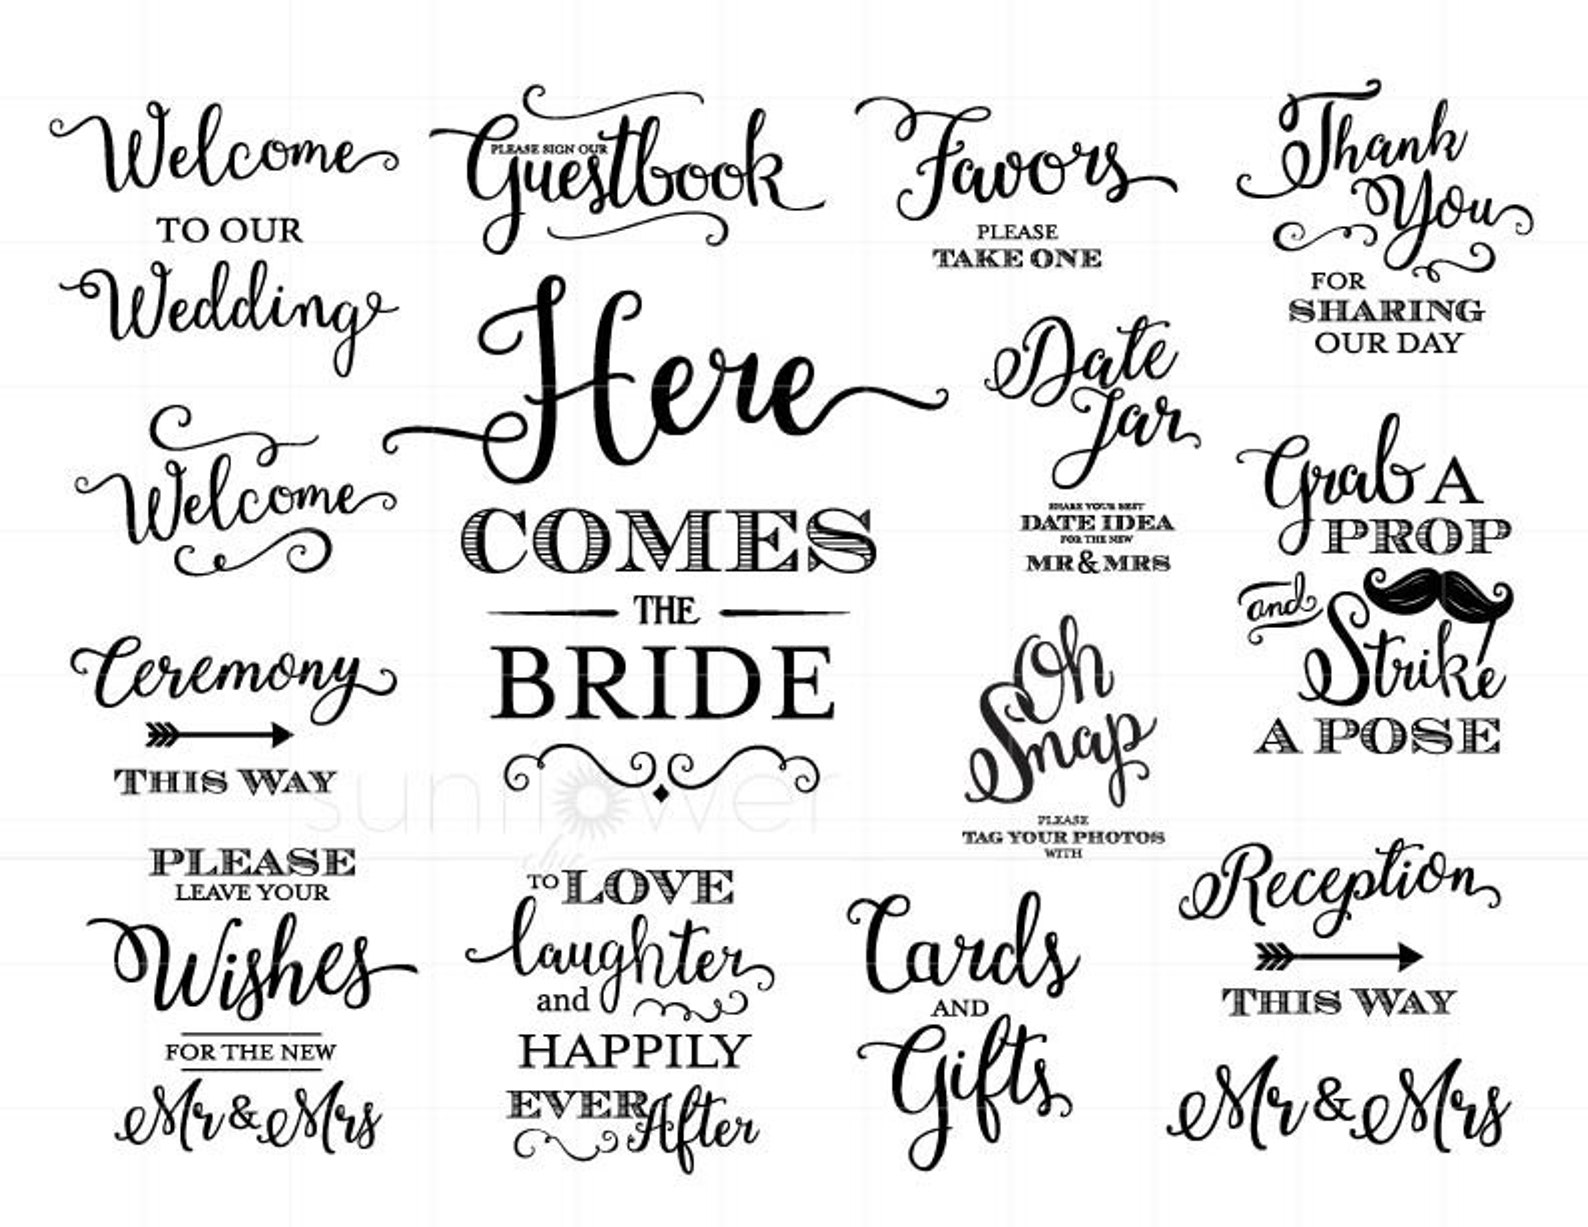 Welcome
TO OUR
Wedding
PLEASE SIGN OUR
Guestbook
Favors
PLEASE
TAKE ONE
Thank
You
FOR
SHARING
OUR DAY
Welcome
Here
COMES
THE
BRIDE
Date
Jar
SHARE YOUR BEST
DATE IDEA
FOR THE NEW
MR & MRS
Grab A
PROP
and
Strike
A POSE
Ceremony
THIS WAY
Oh
Snap
PLEASE
TAG YOUR PHOTOS
WITH
sunflower
chic
PLEASE
LEAVE YOUR
Wishes
FOR THE NEW
Mr & Mrs
TO LOVE
laughter
and
HAPPILY
EVER After
Cards
AND
Gifts
Reception
THIS WAY
Mr & Mrs